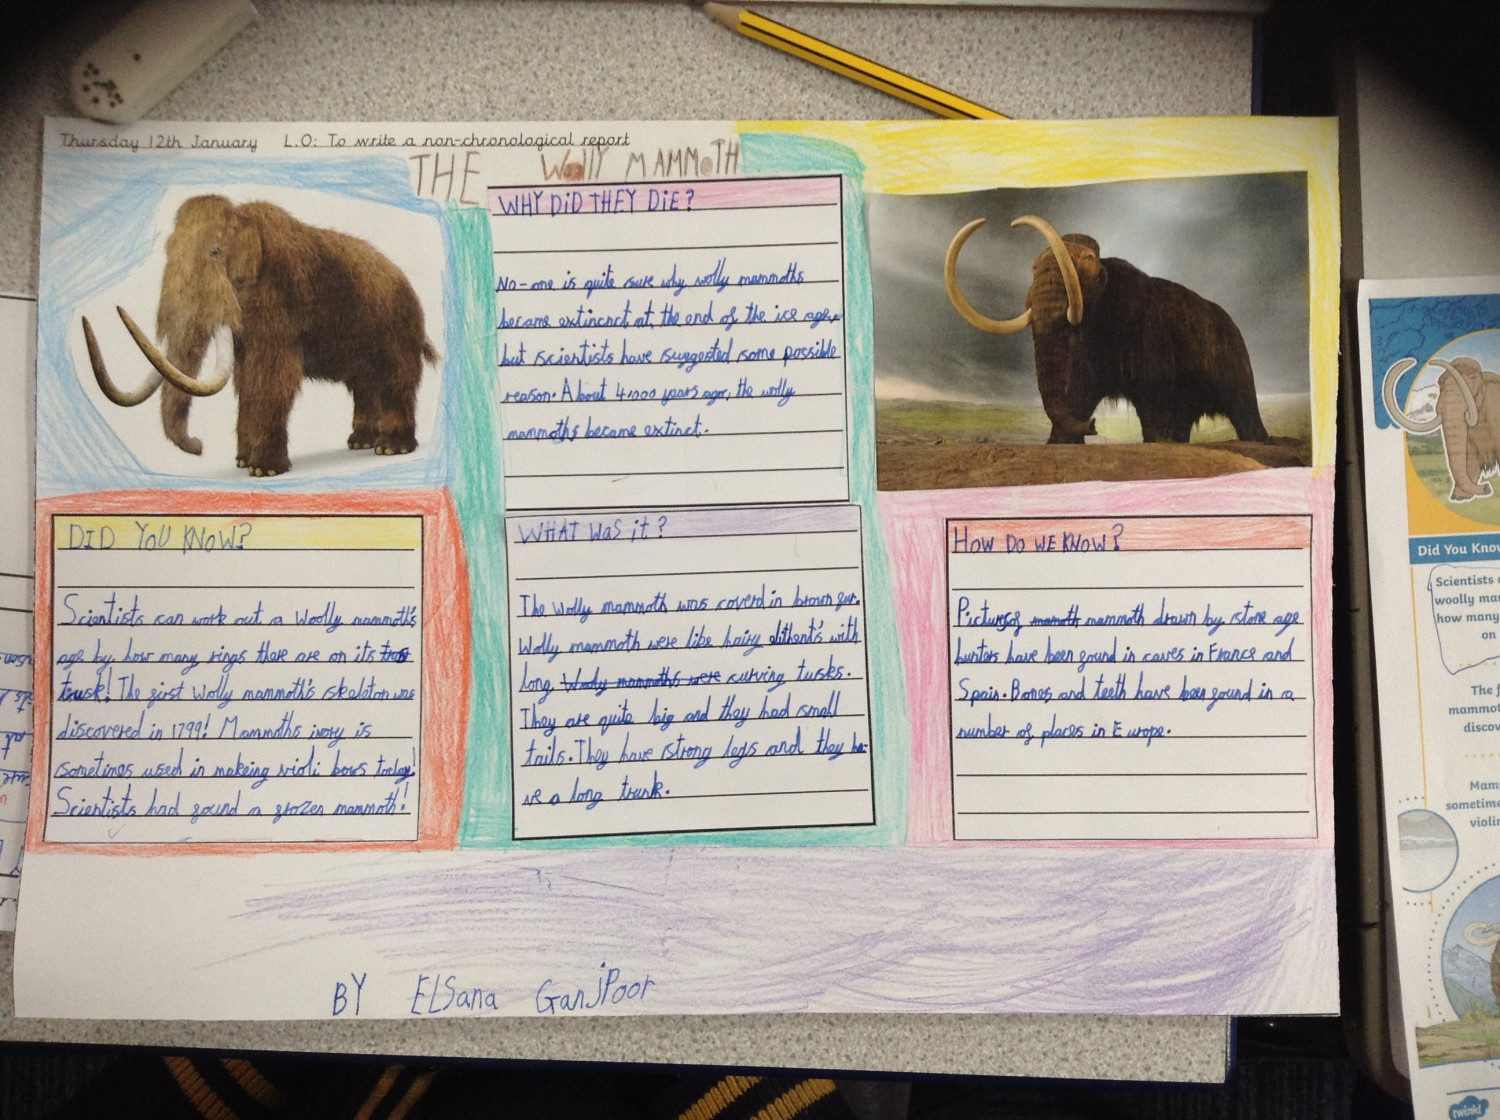 Thursday 12th January L.O: To write a non-chronological report
THE Wolly MAMMOTH
WHY DiD THEY DiE?
No-one is quite sure why wolly mammoths
became extincnct at the end of the ice age,
but scientists have suggested some possible
reason. About 4,000 years ago, the wolly
mammoths became extinct.
DID YOU KNOW?
Scientists can work out a Woolly mammoth's
age by how many rings there are on its
trusk! The first Wolly mammoth's skelaton was
discovered in 1799! Mammoths ivory is
sometimes used in makeing violi bows today!
Scientists had found a frozen mammoth!
WHAT Was it?
The wolly mammoth was coverd in brown fur.
Wolly mammoth were like hairy elithent's with
long Wooly mammoths were curving tusks.
They are quite big and they had small
tails. They have strong legs and they ha-
ve a long trunk.
HOW DO WE KNOW?
Pictures of mamoth mammoth drawn by stone age
hunters have been found in caves in France and
Spain. Bones and teeth have been found in a
number of places in Europe.
BY ELSana GanjPoor
Did You Know
Scientists
woolly ma
how many
on
The f
mammot
discov
Mam
sometime
violin
twinkl